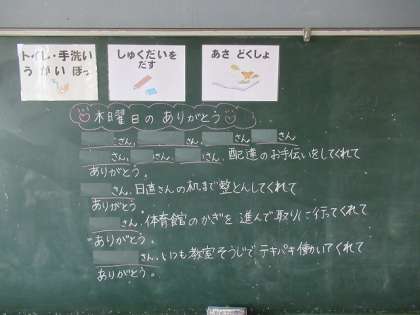 トイレ・手洗い
うがい
しゅくだいを
だす
あさ どくしょ
木曜日の ありがとう
さん、 さん、 さん、 さん
さん、 さん、 さん、配達のお手伝いをしてくれて
ありがとう。
さん、日直さんの机まで整とんしてくれて
ありがとう。
さん、体育館のかぎを 進んで取りに行ってくれて
ありがとう。
さん、いつも教室そうじで テキパキ働いてくれて
ありがとう。